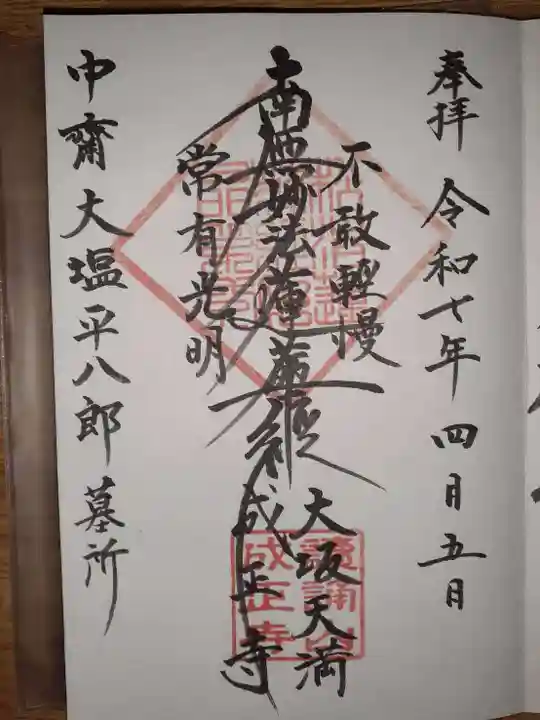 奉拝 令和七年 四月五日
不敢輕慢
大坂天満
南無妙法蓮華経
常有光明
成正寺
中齋大塩平八郎墓所
成正寺